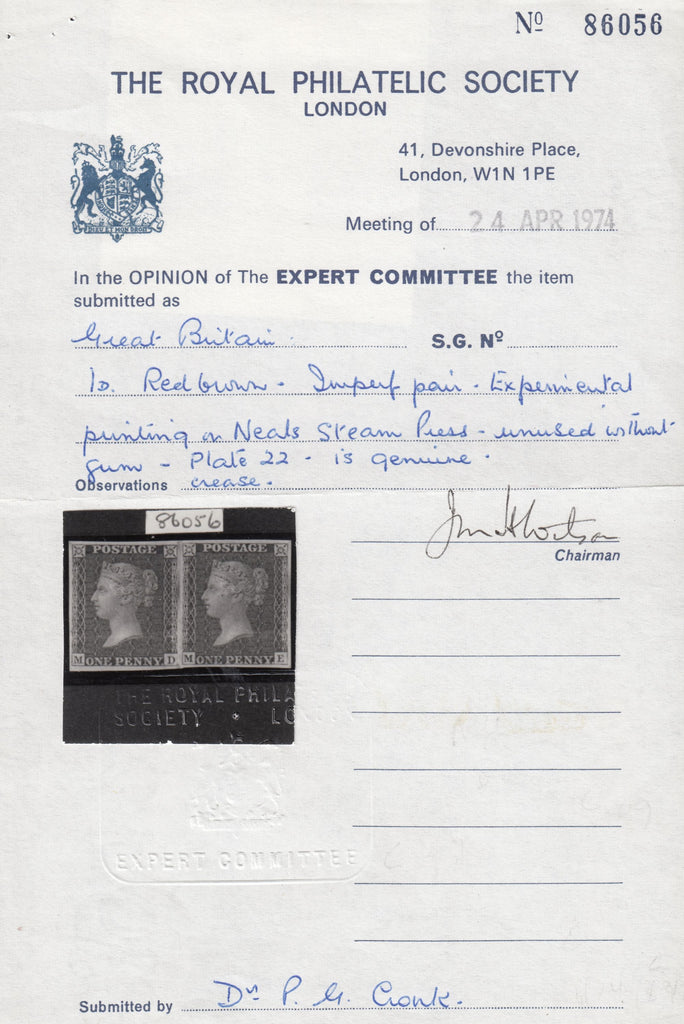 Nº 86056
THE ROYAL PHILATELIC SOCIETY
LONDON
41, Devonshire Place,
London, W1N 1PE
DIEU ET MON DROIT
Meeting of 24 APR 1974
In the OPINION of The EXPERT COMMITTEE the item
submitted as
Great Britain. S.G. Nº
1d. Redbrown - Imperf pair - Experimental
printing on Neals Steam Press - unused without
gum - Plate 22 - is genuine.
Observations crease.
86056
Chairman
POSTAGE POSTAGE
M ONE PENNY D M ONE PENNY E
THE ROYAL PHILA
SOCIETY • LO
EXPERT COMMITTEE
Submitted by Dr P. G. Cronk.